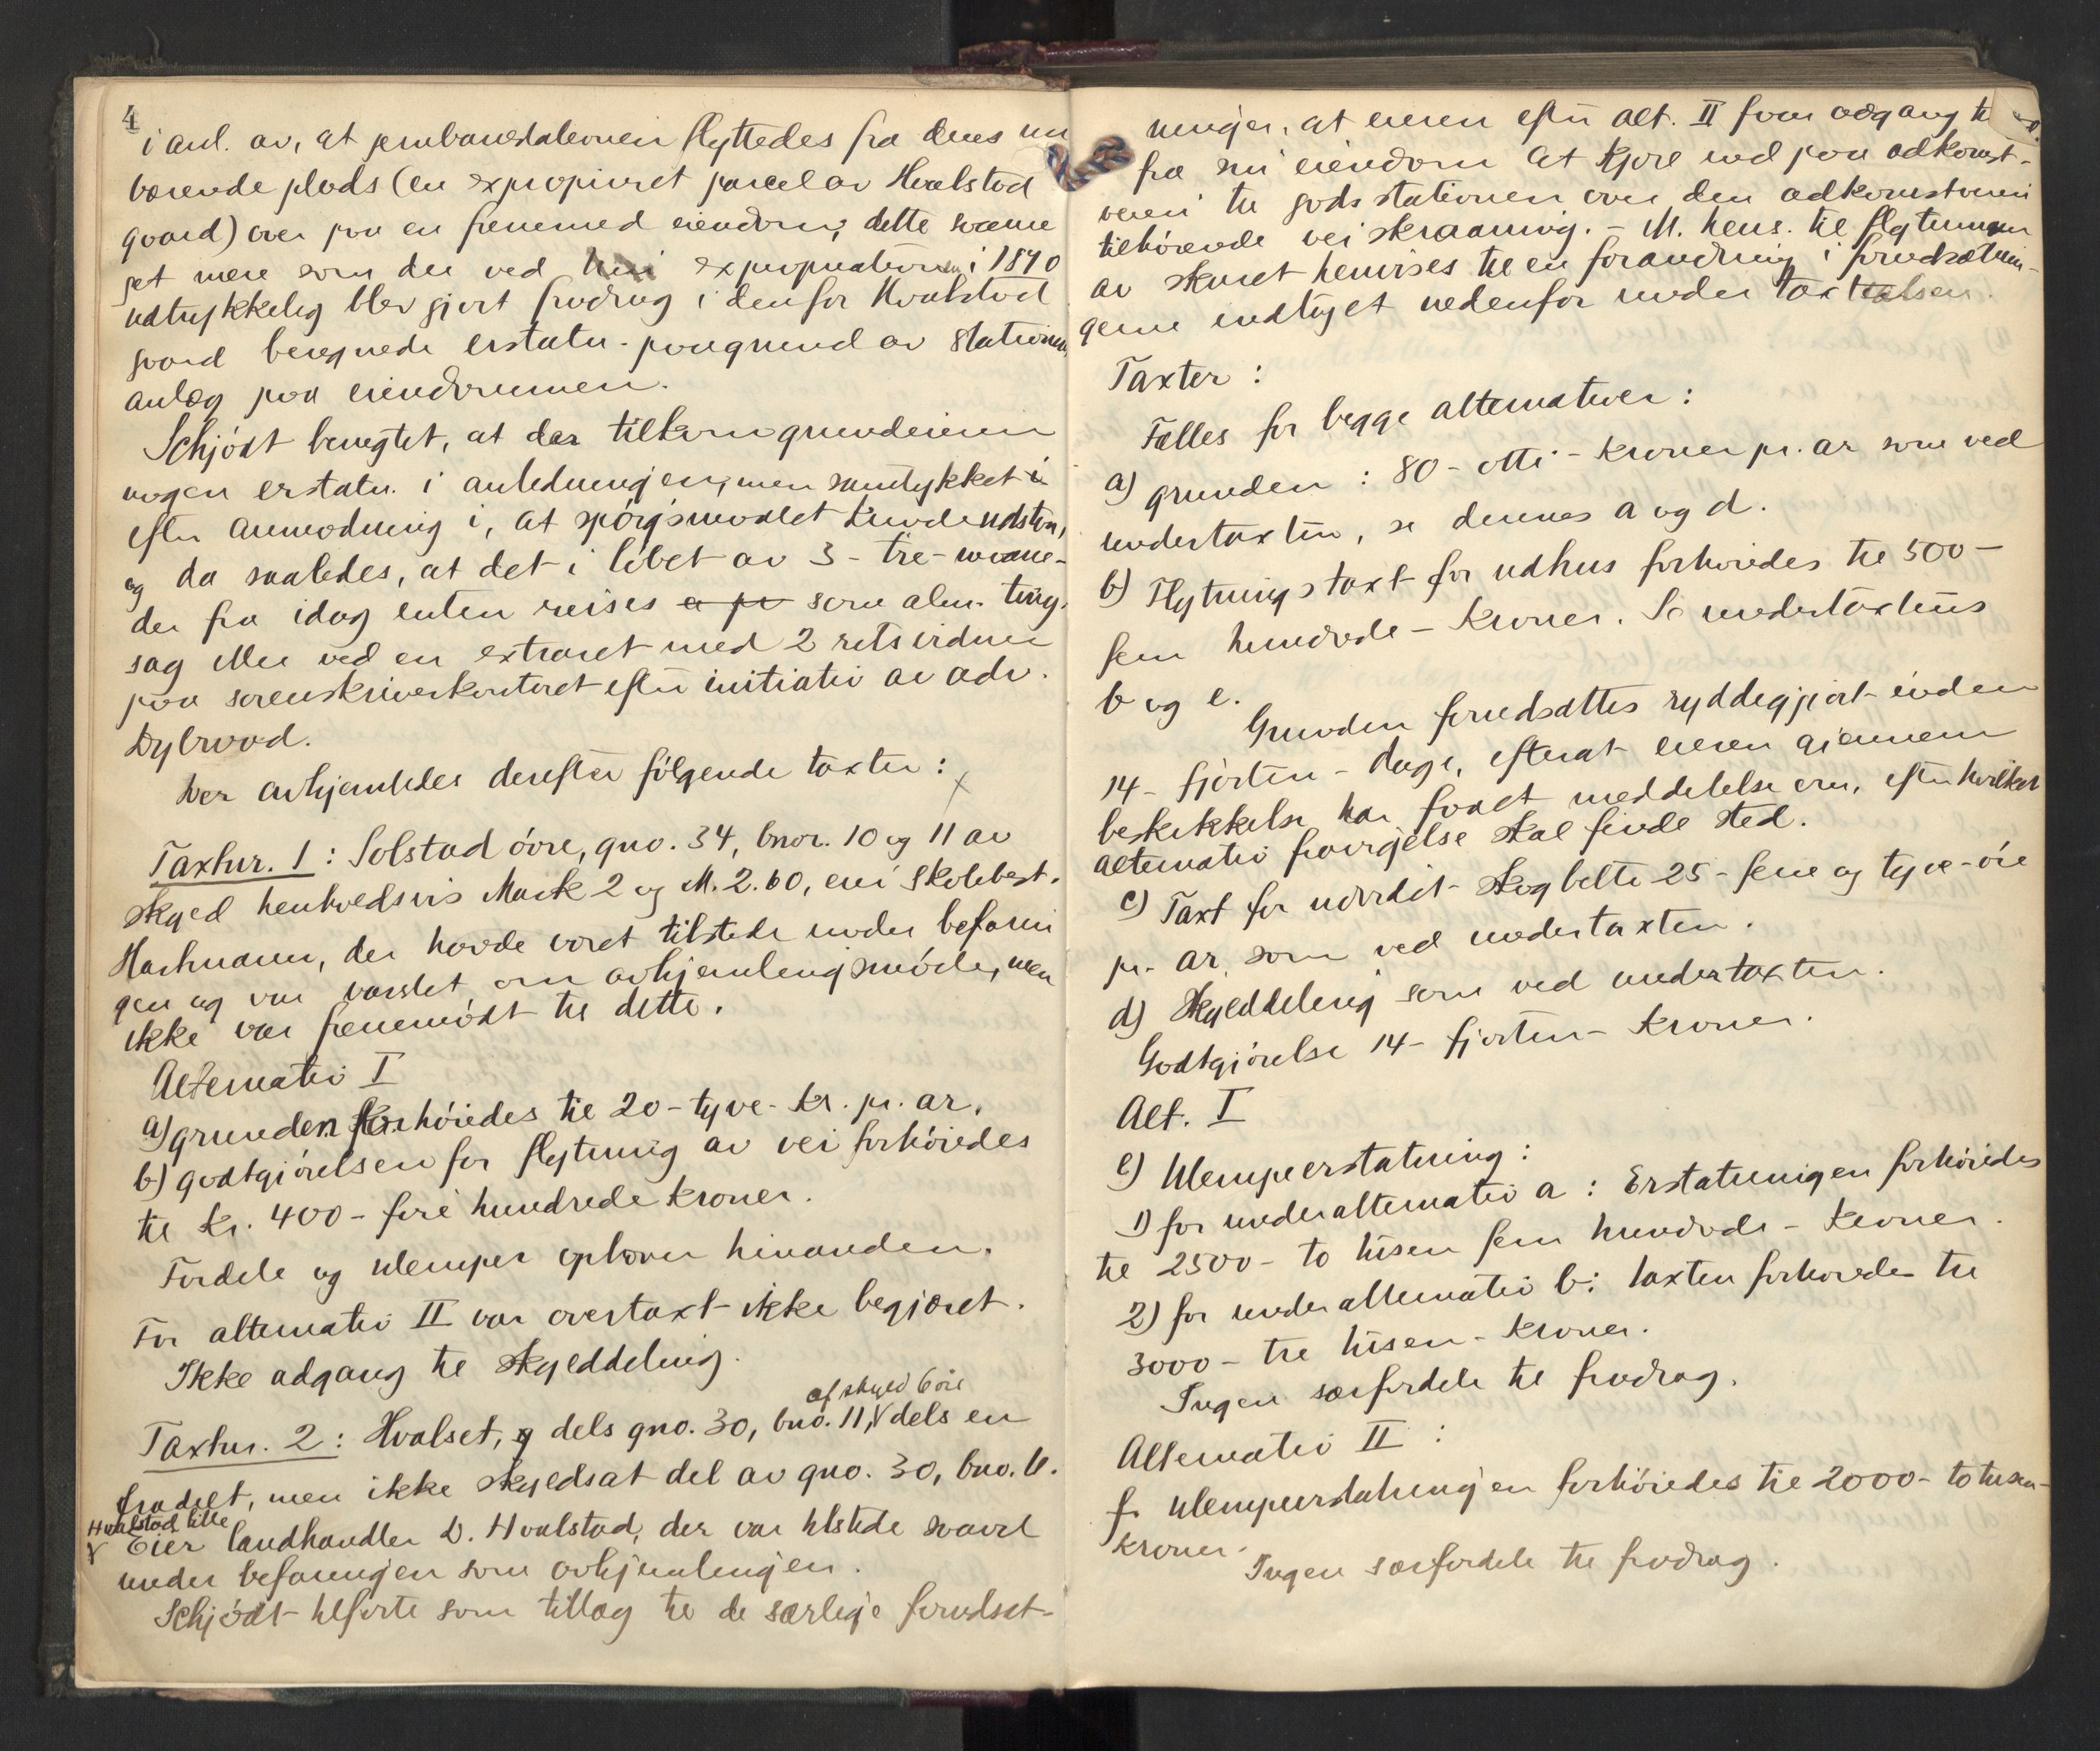 4
i anl. av, at jernbanestationen flyttedes fra dens nu
værende plads (en expropieret parcel av Hvalstad
gaard) over paa en fremmed eiendom; dette saameget
mere som der ved expropriationen i 1870
udtrykkelig blev gjort fradrag i den for Hvalstad
gaard beregnede erstatn. paagrund av stations
anlæg paa eiendommen.
Schjödt benegtet, at der tilkom grundeieren
nogen erstatn. i anledningen, men samtykket
efter anmodning i, at spörgsmaalet kunde udstaa,
og da saaledes, at det i löbet av 3 - tre - maane-
der fra idag enten reises som alm. ting-
sag eller ved en extraret med 2 retsvidner
paa sorenskriverkontoret efter initiativ av adv.
Dybwad.
Der avhjemledes derefter fölgende taxter:
Taxtnr. 1: Solstad övre, gno. 34, bnor. 10 og 11 av
skyld henholdsvis Mark 2 og M. 2.60, eier skolebest.
Hartmann, der havde været tilstede under befarin
gen og var varslet om avhjemlingsmöde, men
ikke var fremmödt til dette.
Alternativ I
a) grunden forhöiedes til 20 - tyve - kr. pr. ar.
b) godtgjörelsen for flytning av vei forhöiedes
til kr. 400 - fire hundrede kroner.
Fordele og ulemper ophæver hinanden.
For alternativ II var overtaxt ikke begjæret.
Ikke adgang til skylddeling.
af skyld 6 öre
Taxtnr. 2: Hvalset, dels gno. 30, bno. 11, dels en
fradelt, men ikke skyldsat del av gno. 30, bno. 4.
Hvalstad lille
Eier landhandler D. Hvalstad, der var tilstede saavel
under befaringen som avhjemlingen.
Schjödt tilförte som tillæg til de særlige forudsæt-
ninger, at eieren efter alt. II faar adgang til
fra sin eiendom at kjöre ind paa adkomst-
veien til godsstationen over den adkomstveien
tilhörende veiskraaning. - M. hens. til flytningen
av skuret henvises til en forandring i forudsætnin-
gerne indtaget nedenfor under taxten.
Taxter:
Fælles for begge alternativer:
a) grunden: 80 - otti - kroner pr. ar som ved
undertaxten, se dennes a og d.
b) Flytningstaxt for udhus forhöiedes til 500 -
fem hundrede - kroner. Se undertaxtens
b og e.
Grunden forudsættes ryddiggjort inden
14 - fjorten - dage, efterat eieren gjennem
beskikkelse har faaet meddelelse om, efter hvilket
alternativ fravigelse skal finde sted.
c) Taxt for udvidet skogbelte 25 - fem og tyve - öre
pr. ar, som ved undertaxten.
d) Skylddeling som ved undertaxten.
Godtgjörelse 14 - fjorten - kroner.
Alt. I
e) Ulempeerstatning:
1) for underalternativ a: Erstatningen forhöiedes
til 2500 - to tusen fem hundrede - kroner.
2) for underalternativ b: taxten forhöiedes til
3000 - tre tusen - kroner.
Ingen særfordele til fradrag.
Alternativ II:
f. Ulempeerstatningen forhöiedes til 2000 - to tusen -
kroner.
Ingen særfordele til fradrag.